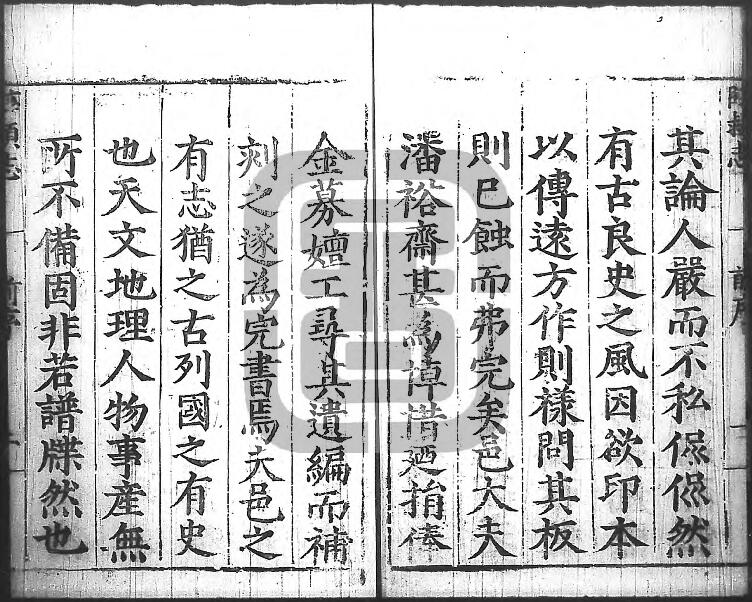 其論人嚴而不私侃侃然
有古良史之風因欲印本
以傳遠方作則様問其板
則已蝕而弗完矣邑大夫
潘裕齋甚為悼惜廼捐俸
金募嬗工尋其遺編而補
刻之遂為完書焉夫邑之
有志猶之古列國之有史
也天文地理人物事産無
所不備固非若譜牒然也